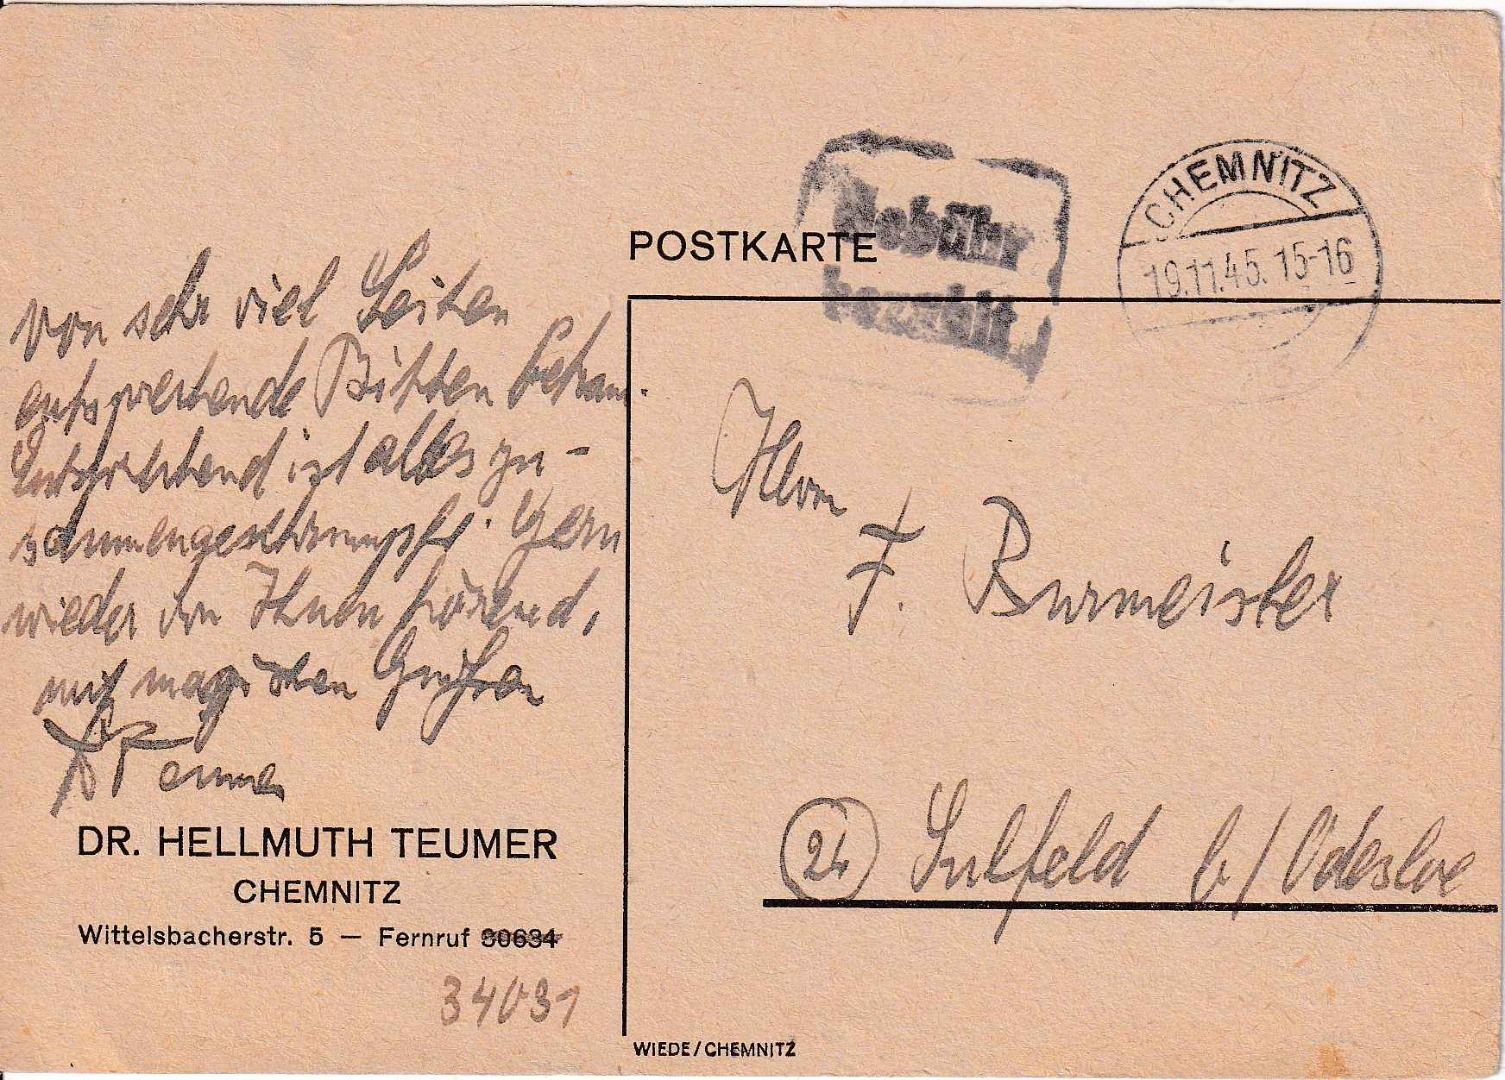 POSTKARTE
Gebühr
bezahlt
CHEMNITZ
19.11.45. 15-16
von sehr viel Seiten
entsprechende Bitten bekam.
Entsprechend ist alles zu-
sammengeschrumpft. Gern
wieder von Ihnen hörend,
mit magischen Grüßen
Teumer
DR. HELLMUTH TEUMER
CHEMNITZ
Wittelsbacherstr. 5 — Fernruf 30634
34031
Herrn
F. Burmeister
24 Sülfeld b/Odesloe
WIEDE/CHEMNITZ